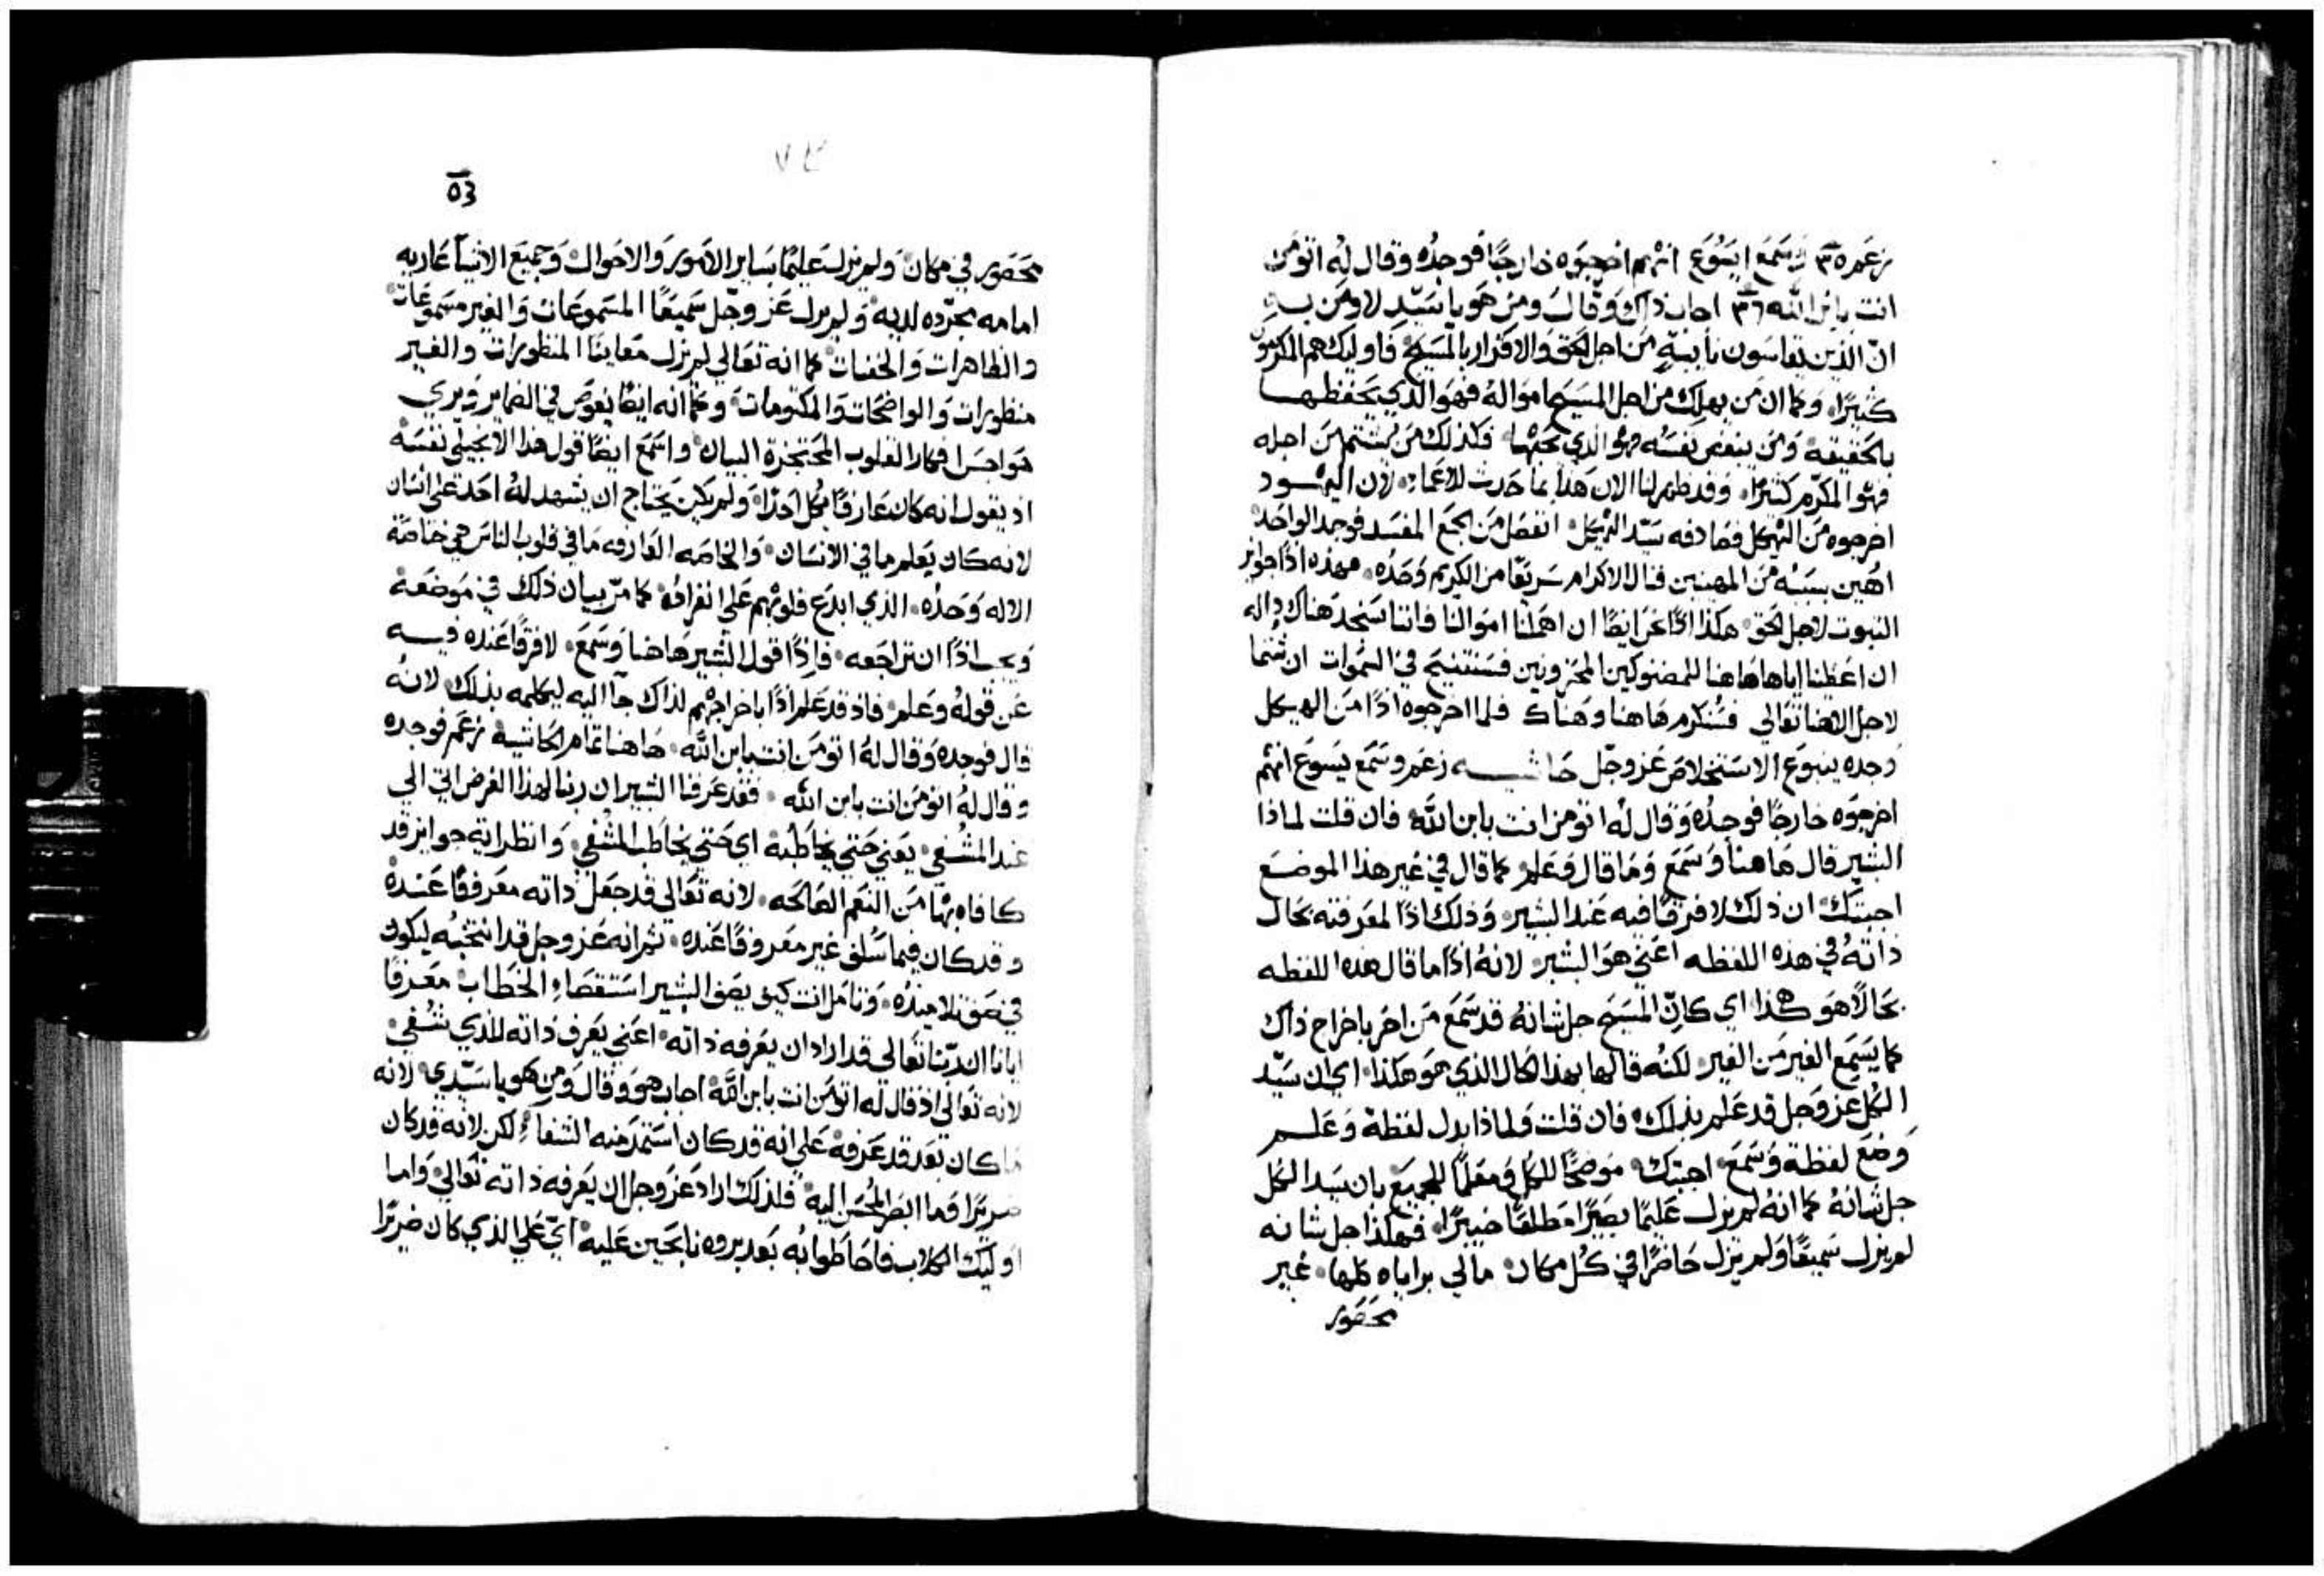 زعم ٣٥ وسمع ايسوع انهم اخرجوه خارجًا فوجده وقال له اتومن
انت بابن الله ٣٦ اجاب ذاك وقال ومن هو يا سيد لاومن به
ان الذين يقاسون باييةٍ من اجل الحق والاقرار بالمسيح فاوليك هم المكرمون
كثيرًا، وكما ان من يهلك من اجل المسيح امواله فهو الذي يحفظها
بالحقيقه ومن يبغض نفسه فهو الذي يحبها فكذلك من يشتم من اجله
فهو المكرم كثيرًا. وقد ظهر لنا الان هذا بما حدث للاعما، لان اليهود
اخرجوه من الهيكل فصادفه سيد الهيكل انفصل من المجمع المفسد فوجد الواحد
اهين بسببه من المهينين فنال الاكرام سريعًا من الكريم وحده، فهذه اذًا جوايز
الثبوت لاجل الحق هكذا اذًا نحن ايضًا ان اهملنا اموالنا فاننا سنجد هناك داله
ان اعطينا اياها هاهنا للمضنوكين المحزونين فسنتنيح في السموات ان شتمنا
لاجل الاهنا تعالى فسنكرم هاهنا وهناك فلما اخرجوه اذًا من الهيكل
وجده ينبوع الاستخلاص عز وجل حاشيه زعم وسمع يسوع انهم
اخرجوه خارجًا فوجده وقال له اتومن انت بابن الله فان قلت لماذا
البشير قال هاهنا وسمع وما قال وعلم كما قال في غير هذا الموضع
اجبتك ان ذلك لا فرقًا فيه عند البشير وذلك اذًا لمعرفته بحال
ذاته في هذه اللفظه اعني هو البشير لانه اذًا ما قال هذه اللفظه
بحالًا هو هكذا اي كانّ المسيح جل شانه قد سمع من اخر باخراج ذاك
كما يسمع الغير من الغير لكنه قالها بهذا الحال الذي هو هكذا اي ان سيد
الكل عز وجل قد علم بذلك فان قلت ولماذا بدل لفظة وعلم
وضع لفظة وسمع اجبتك موضحًا للكل ومعلمًا للجميع بان سيد الكل
جل شانه كما انه لم يزل عليمًا بصيرًا مطلقًا خبيرًا، فهكذا جل شانه
لم يزل سميعًا ولم يزل حاضرًا في كل مكان مالي براياه كلها، غير
محصور
٥٣
محصور في مكان ولم يزل عليمًا بساير الامور والاحوال وجميع الاشيآ عاريه
امامه مجرده لديه ولم يزل عز وجل سميعًا المسموعات والغير مسموعات
والظاهرات والخفيات كما انه تعالى لم يزل معاينًا المنظورات والغير
منظورات والواضحات والمكتومات وكما انه ايضًا يغوص في الضماير ويري
هواجس افكار القلوب المحتجزة البيان واسمع ايضًا قول هذا الانجيلي نفسه
اذ يقول انه كان عارفًا بكل احدًا ولم يكن يحتاج ان يشهد له احد على انسان
لانه كان يعلم ما في الانسان والخاصه العارفه ما في قلوب الناس هي خاصة
الاله وحده الذي ابدع قلوبهم على انفراد، كما مرّ بيان ذلك في موضعه
ويجب اذًا ان تراجعه فاذًا قول البشير هاهنا وسمع لا فرقًا عنده فيه
عن قوله وعلم فاذ قد علم اذًا باخراجهم لذاك جآ اليه ليكلمه بذلك لانه
قال فوجده وقال له اتومن انت بابن الله هاهنا تمام الحاشية زعم فوجده
وقال له اتومن انت بابن الله. فقد عرفنا البشير ان ربنا لهذا الغرض اتي الي
عند المشفي يعني حتي يخاطبه اي حتي يخاطب المشفي وانظر اية جوايز قد
كافاه بها من النعم الصالحه لانه تعالى قد جعل ذاته معروفًا عنده
وقد كان فيما سلف غير معروفًا عنده ثم انه عز وجل قد انتخبه ليكون
في صف تلاميذه وتامل انت كيف يصف البشير استقصاء الخطاب معرفًا
ايانا ان ربّنا تعالى قد اراد ان يعرفه ذاته اعني يعرف ذاته للذي شفي
لانه تعالى اذ قال له اتومن انت بابن الله اجاب هو وقال ومن هو يا سيدي لانه
ما كان بعد قد عرفه على انه قد كان استمد منه الشفآ لكن لانه قد كان
ضريرًا وما ابصر المحسن اليه فلذلك اراد عز وجل ان يعرفه ذاته تعالى واما
اوليك الكلاب فاحاطوا به بعد بروه نابحين عليه اي على الذي كان ضريرًا